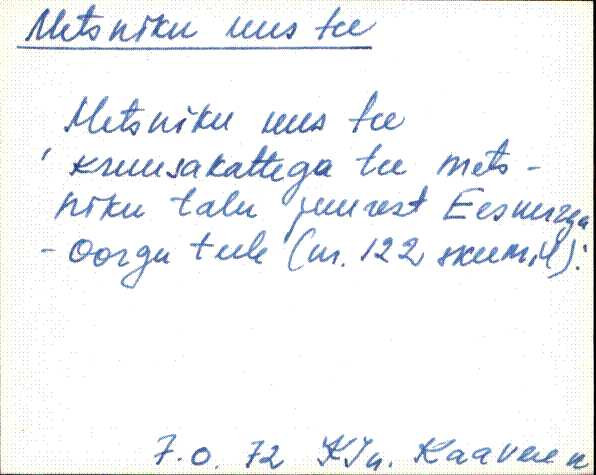 Metsniku uus tee
Metsniku uus tee
' kruusakattega tee mets-
niku talu juurest Eesnurga
- Oorgu teele (nr. 122 skeemil).'
7.0. 72 KJn. Kaavere